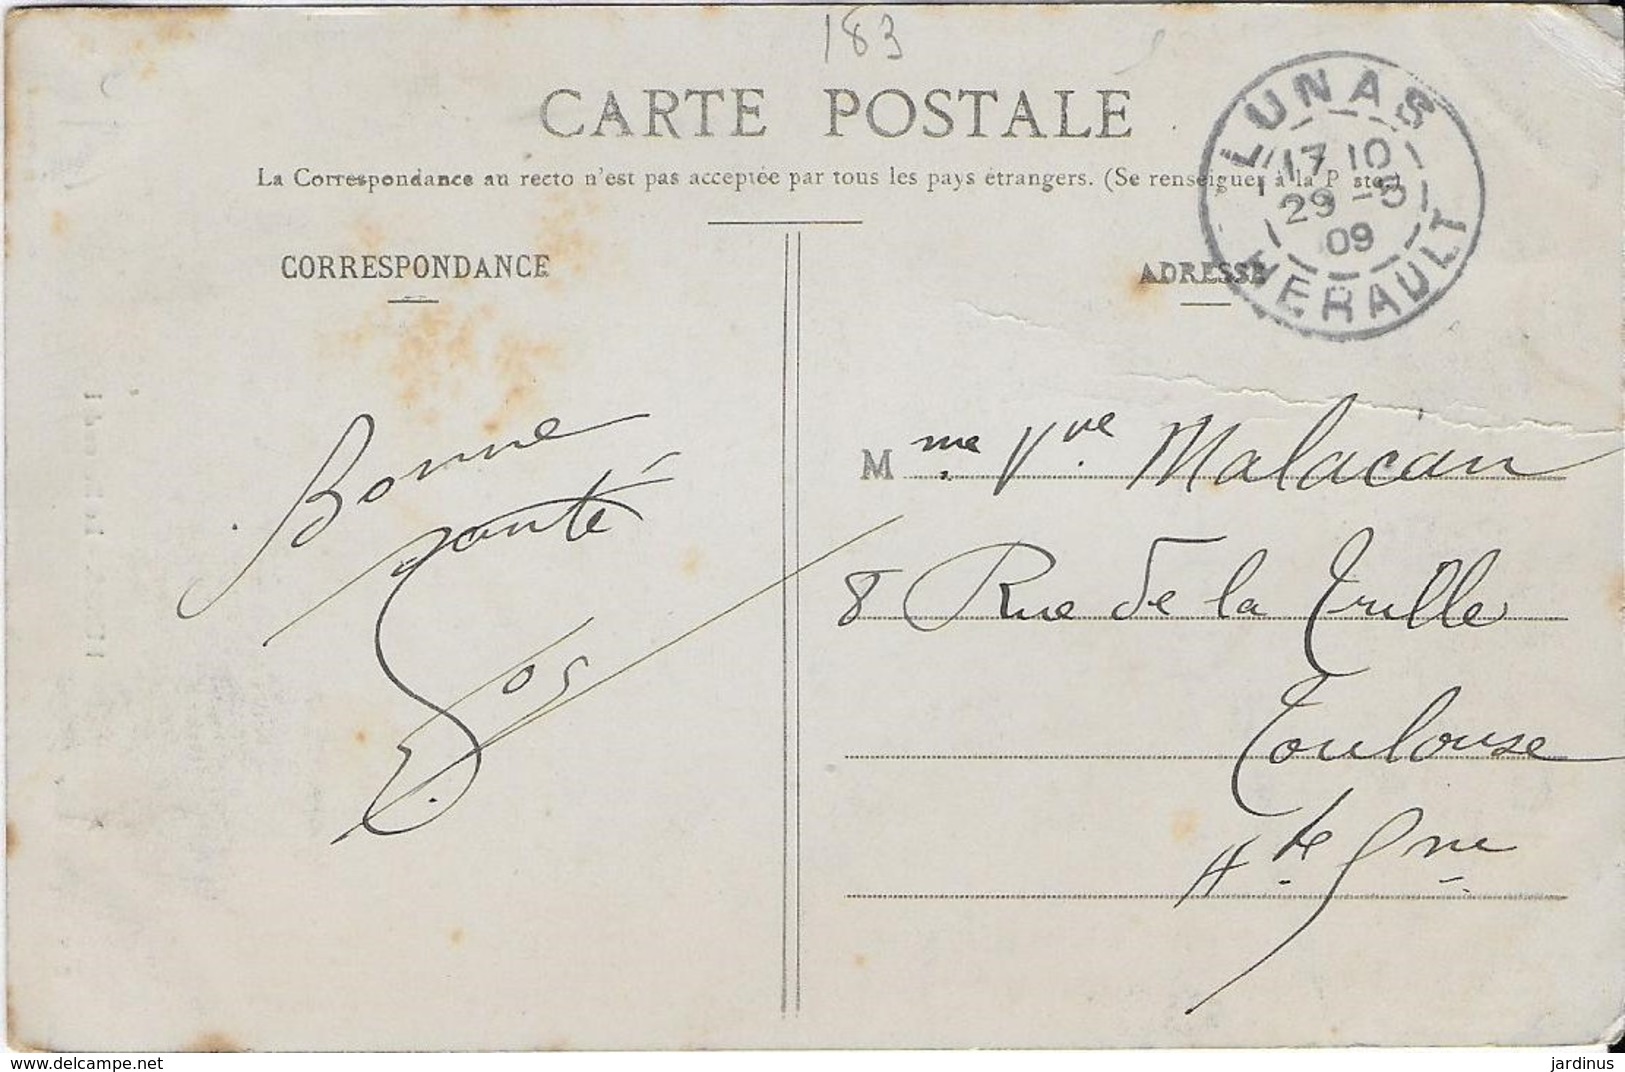 183
CARTE POSTALE
La Correspondance au recto n'est pas acceptée par tous les pays étrangers. (Se renseigner à la Poste)
LUNAS
17 10
09
HERAULT
CORRESPONDANCE
ADRESSE
Bonne
santé
Mme Vve Malacan
8 Rue de la Trille
Toulouse
Hte Gne
delcampe.net
jardinus